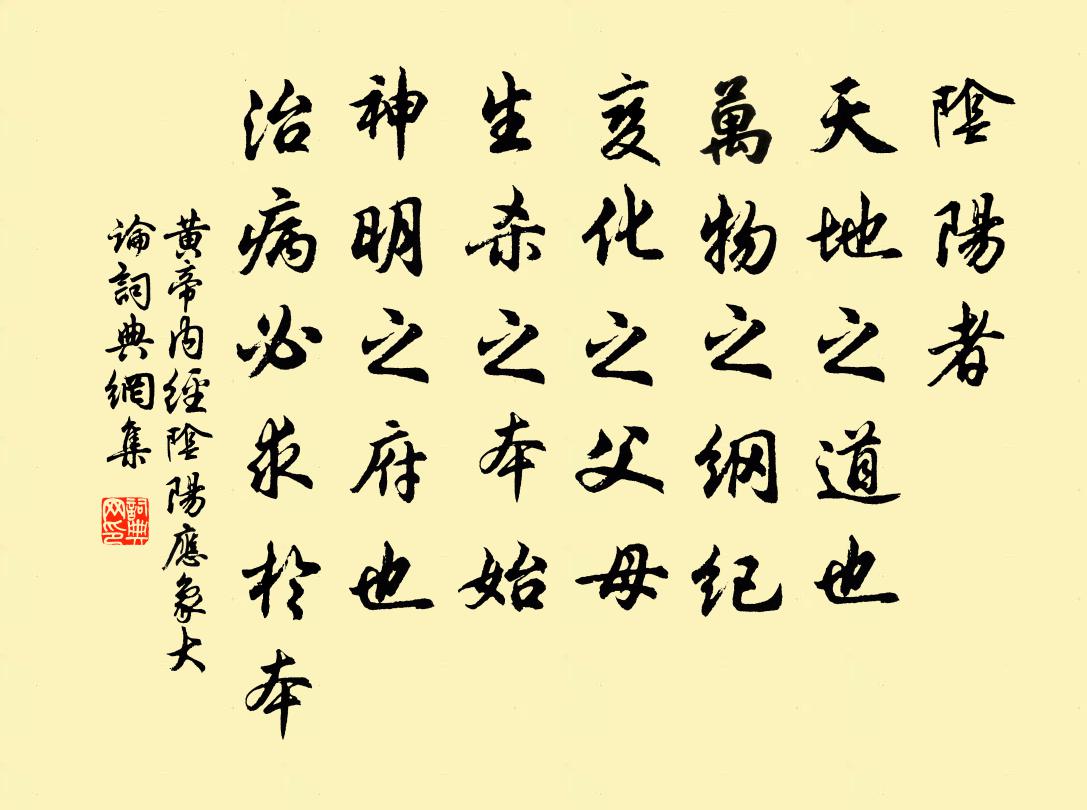 陰陽者
天地之道也
萬物之纲纪
变化之父母
生杀之本始
神明之府也
治病必求於本
黄帝内經陰陽應象大
論詞典網集
詞典
网印